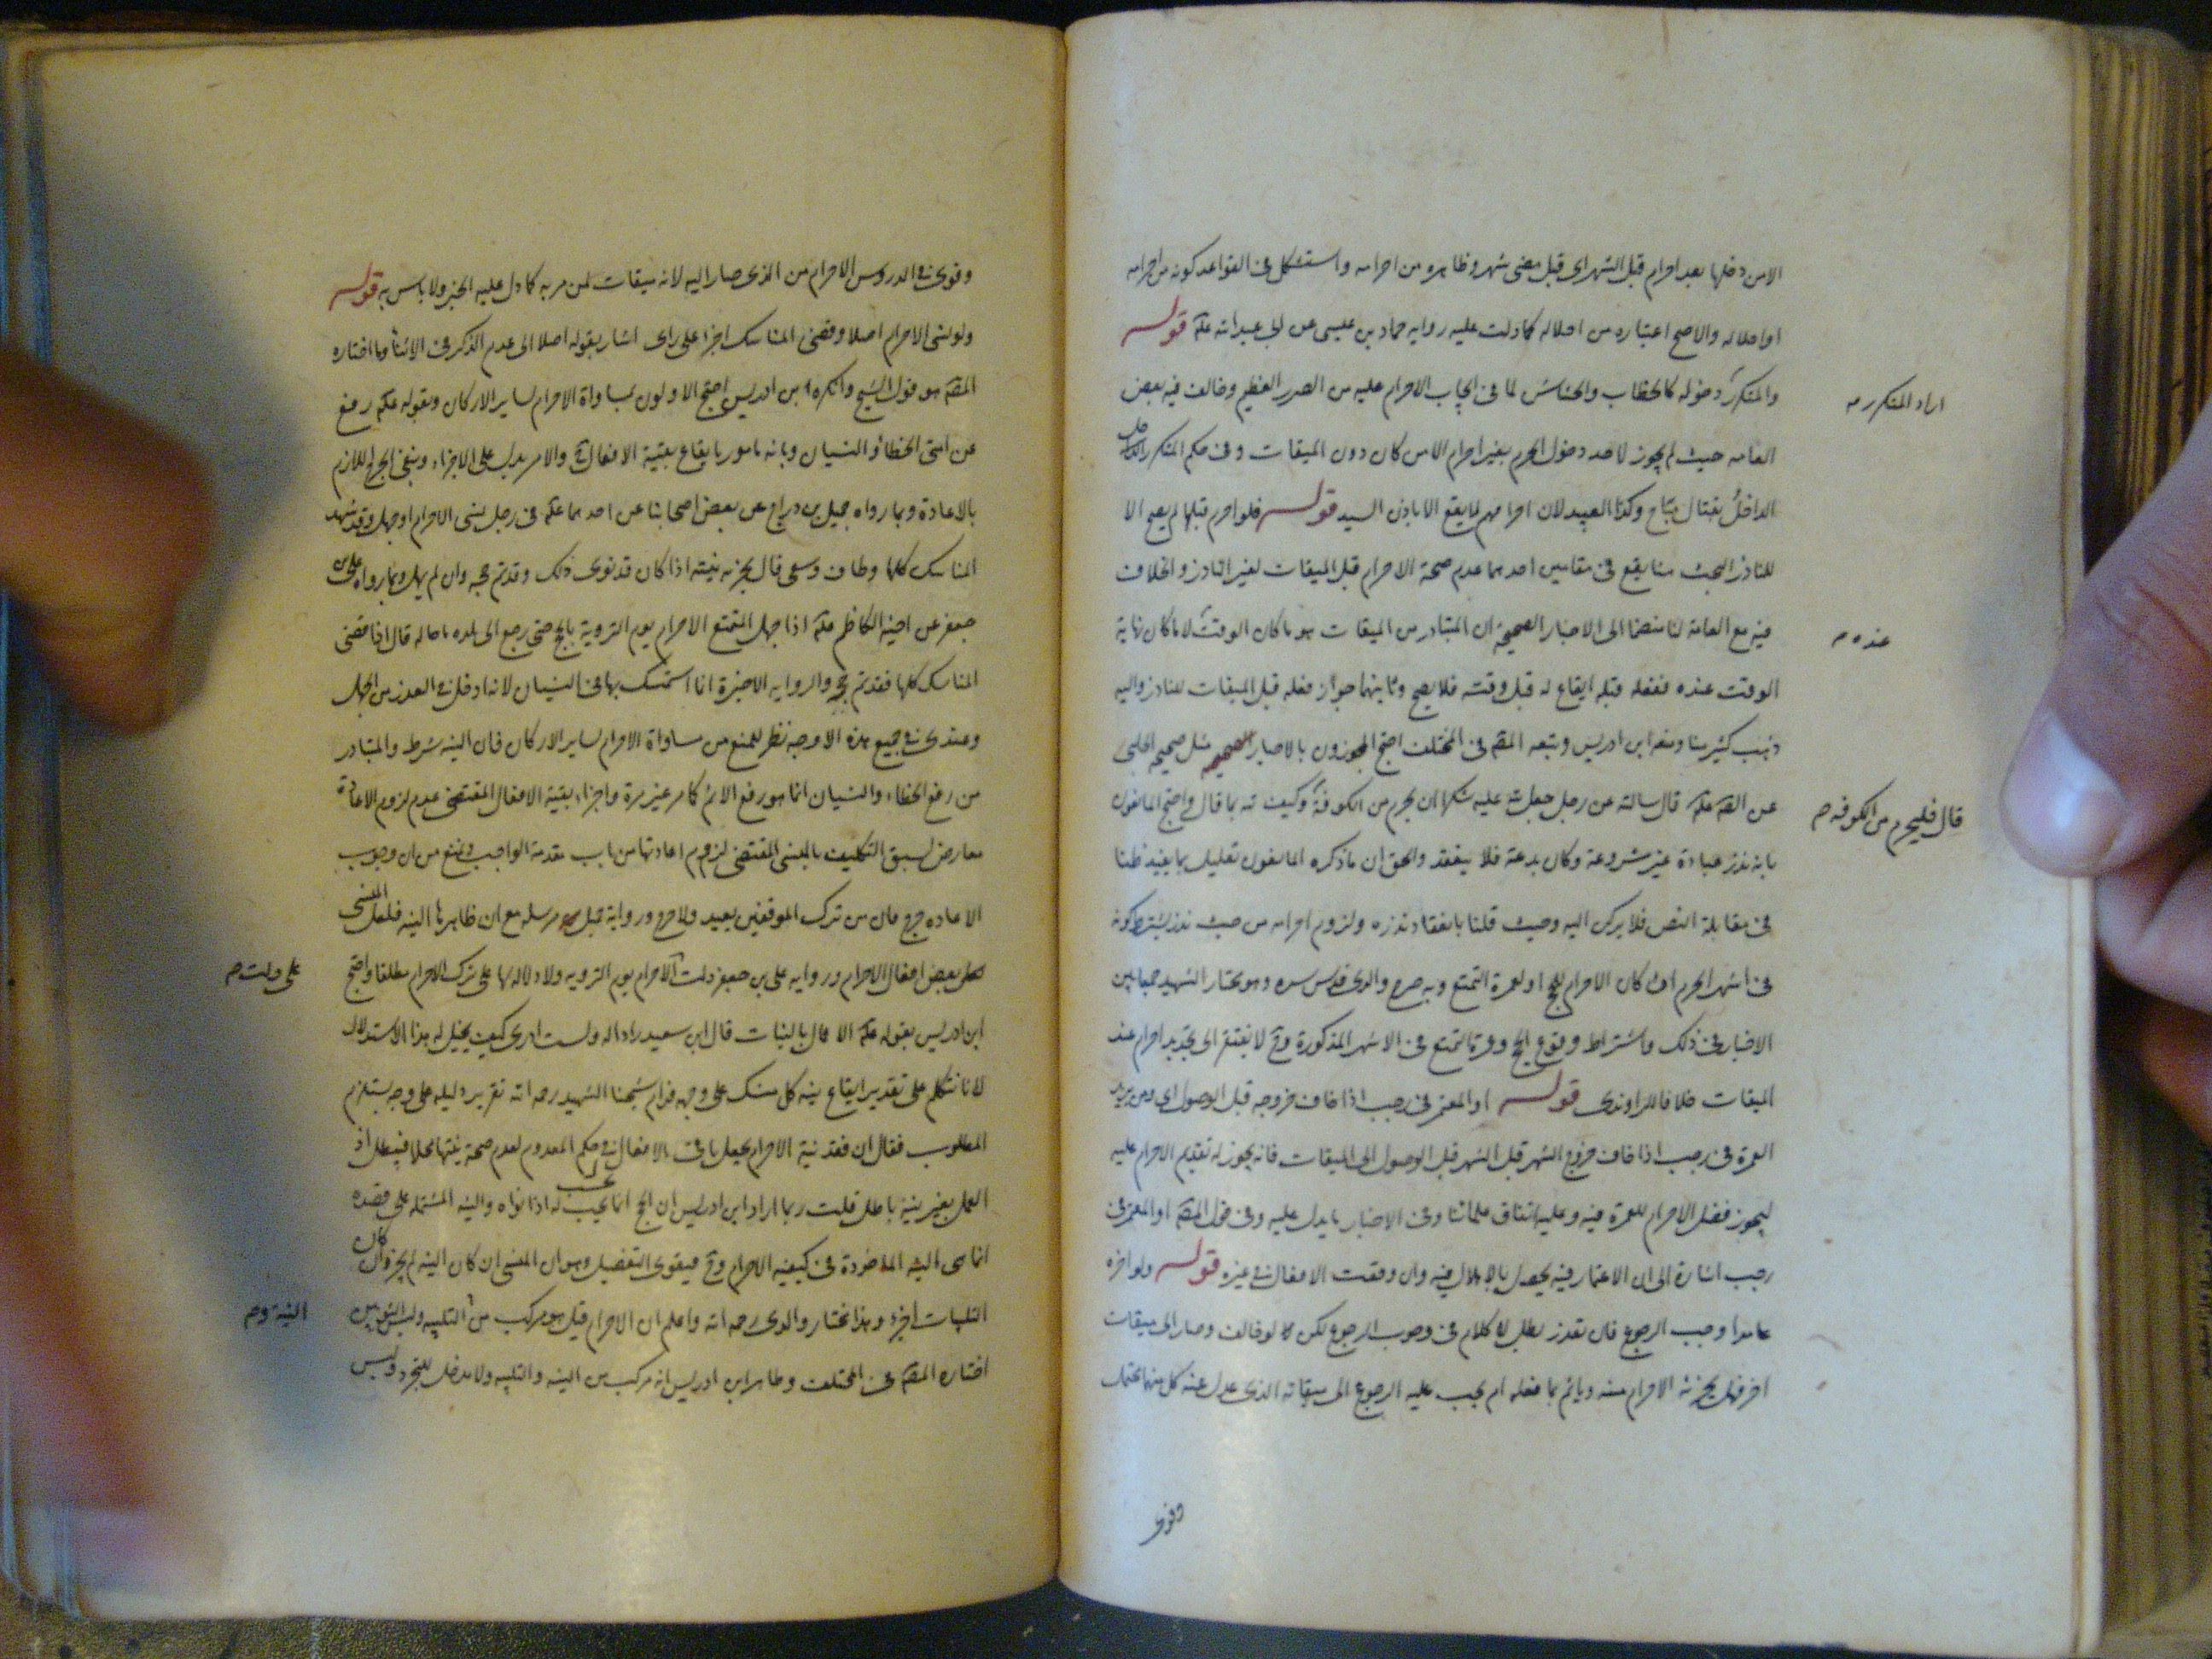 الا من دخلها بعد احرام قبل الشهر اى قبل مضى شهر وظاهره من احرامه واستشكل فى القواعد كونه من احرامه
او احلاله والاصح اعتباره من احلاله كما دلت عليه رواية حماد بن عيسى عن ابى عبد الله علیه قوله
والمتكرر دخوله كالحطاب والحشاش لما فى ايجاب الاحرام عليه من الضرر العظيم وخالف فيه بعض
اراد المتكرر مه
العامه حيث لم يجوز لاحد دخول الحرم بغير احرام الا من كان دون الميقات وفى حكم المتكرر الداخل
الداخل بقتال مباح وكذا العبيد لان احرامهم لا يقع الا باذن السيد قوله فلو احرم قبلها لم يصح الا
للناذر البحث هنا يقع فى مقامين احدهما عدم صحة الاحرام قبل الميقات لغير الناذر والخلاف
فيه مع العامة لنا منضما الى الاخبار الصحيحة ان المتبادر من الميقات هو ما كان الوقت لا ما كان نهاية
عنده م
الوقت عنده ففعله قبله ايقاع له قبل وقته فلا يصح وثانيهما جواز فعله قبل الميقات للناذر واليه
ذهب كثير منا ومنعه ابن ادريس وتبعه المصَ فى المختلف احتج المجوزون بالاخبار الصحيحه مثل صحيحه الحلبى
عن الصَ علیه قال سالته عن رجل جعل لله عليه شكرا ان يحرم من الكوفة وليف لله بما قال واحتج المانعون
قال فليحرم من الكوفه م
بانه نذر عبادة غير مشروعة وكان بدعة فلا ينعقد والحق ان ما ذكره المانعون تعليل بما يفيد ظنا
فى مقابلة النص فلا يركن اليه وحيث قلنا بانعقاد نذره ولزوم احرامه من حيث نذر يشترط كونه
فى اشهر الحرم ان كان الاحرام للحج او لعمرة التمتع وبه صرح والدى قدس سره وهو مختار الشهيد جمعا بين
الاخبار فى ذلك واشتراط وقوع الحج وعمرة التمتع فى الاشهر المذكورة وح لا يفتقر الى تجديد احرام عند
الميقات خلافا للراوندى قوله او المعتمر فى رجب اذا خاف خروجه قبل الوصول اى ومن يريد
العمرة فى رجب اذا خاف خروج الشهر قبل الشهر قبل الوصول الى الميقات فانه يجوز له تقديم الاحرام عليه
ليحوز فضل الاحرام للعمرة فيه وعليه اتفاق علمائنا وفى الاخبار ما يدل عليه وفى قول المصَ او المعتمر فى
رجب اشارة الى ان الاعتمار فيه يحصل بالاهلال فيه وان وقعت الافعال فى غيره قوله ولو اخره
عامدا وجب الرجوع فان تعذر بطل لا كلام فى وجوب الرجوع لكن لو خالف وصار الى ميقات
اخر فهل يجزئه الاحرام منه وياثم بما فعله ام يجب عليه الرجوع الى ميقاته الذى عدل عنه كل منهما محتمل
وقوى
وقوى فى الدروس الاحرام من الذى صار اليه لانه ميقات لمن مر به كما دل عليه الخبر ولا باس به قوله
ولو نسى الاحرام اصلا وقضى المناسك اجزا على راى اشار بقوله اصلا الى عدم الذكر فى الاثنا وما اختاره
المصَ هو قول الشيخ وانكره ابن ادريس احتج الاولون بمساواة الاحرام لساير الاركان وبقوله علیه رفع
عن امتى الخطا والنسيان وبانه مامور بايقاع بقية الافعال ح والامر يدل على الاجزاء وبنفى الحرج اللازم
بالاعادة وبما رواه جميل بن دراج عن بعض اصحابنا عن احدهما علیه فى رجل نسى الاحرام او جهل وقد شهد
المناسك كلها وطاف وسعى قال يجزيه نيته اذا كان قد نوى ذلك وقد تم حجه وان لم يهل وبما رواه على بن
جعفر عن اخيه الكاظم علیه اذا جهل المتمتع الاحرام يوم التروية بالحج حتى رجع الى بلده ما حاله قال اذا قضى
المناسك كلها فقد تم حجه والرواية الاخيرة انما استمسك بها فى النسيان لانه ادخل فى العذر من الجهل
وعندى فى جميع هذه الاوجه نظر للمنع من مساواة الاحرام لساير الاركان فان النيه شرط والمتبادر
من رفع الخطاء والنسيان انما هو رفع الاثم كما مر غير مرة واجزاء بقية الافعال المقتضى عدم لزوم الاعادة
معارض لسبق التكليف بالمنسى المقتضى لزوم اعادتها من باب مقدمة الواجب ونمنع من ان وجوب
الاعاده حرج فان من ترك الموقفين يعيد ولا حرج ورواية جميل مرسله مع ان ظاهرها النيه فلعل المنسى
بعض افعال الاحرام ورواية على بن جعفر دلت الاحرام يوم الترويه ولا دلاله لها على ترك الاحرام مطلقا واحتج
على دلت م
ابن ادريس بقوله علیه الاعمال بالنيات قال ابن سعيد رادا له ولست ادرى كيف يخيل له هذا الاستدلال
لانا نتكلم على تقدير ايقاع نية كل منسك على وجهه فرام شيخنا الشهيد رحمه الله تقرير دليله على وجه يستلزم
المطلوب فقال ان فقد نية الاحرام يجعل باقى الافعال فى حكم المعدوم لعدم صحة نيتها محلا فيبطل اذ
العمل بغير نية باطل قلت ربما اراد ابن ادريس ان الحج انما يجب له اذا نواه والنيه المشتمله على قصده
انما هى النيه الماخوذة فى كيفيه الاحرام وح فيقوى التفصيل وهو ان المنسى ان كان النيه لم يجز وان كان
التلبيات اجزء وهذا مختار والدى رحمه الله واعلم ان الاحرام قيل هو مركب من التلبيه ولبس الثوبين
النية و م
اختاره المصَ فى المختلف وظاهر ابن ادريس انه مركب من النيه والتلبيه ولا مدخل للتجرد ولبس